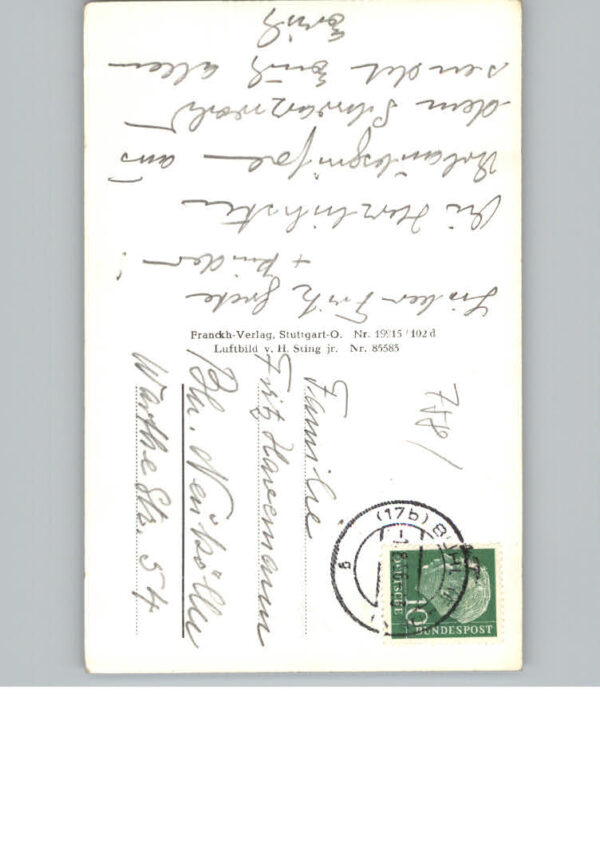 Lieber Fritz Grete
+ Kinder!
Die Herzlichsten
Urlaubsgrüße aus
dem Schwarzwald
sendet Euch allen
Erich
Franckh-Verlag, Stuttgart-O. Nr. 19915/102d
Luftbild v. H. Sting jr. Nr. 85585
Familie
Fritz Havemann
Bln. Neukölln
Warthe Str. 54
(17b) BÜHL
DEUTSCHE
BUNDESPOST
10